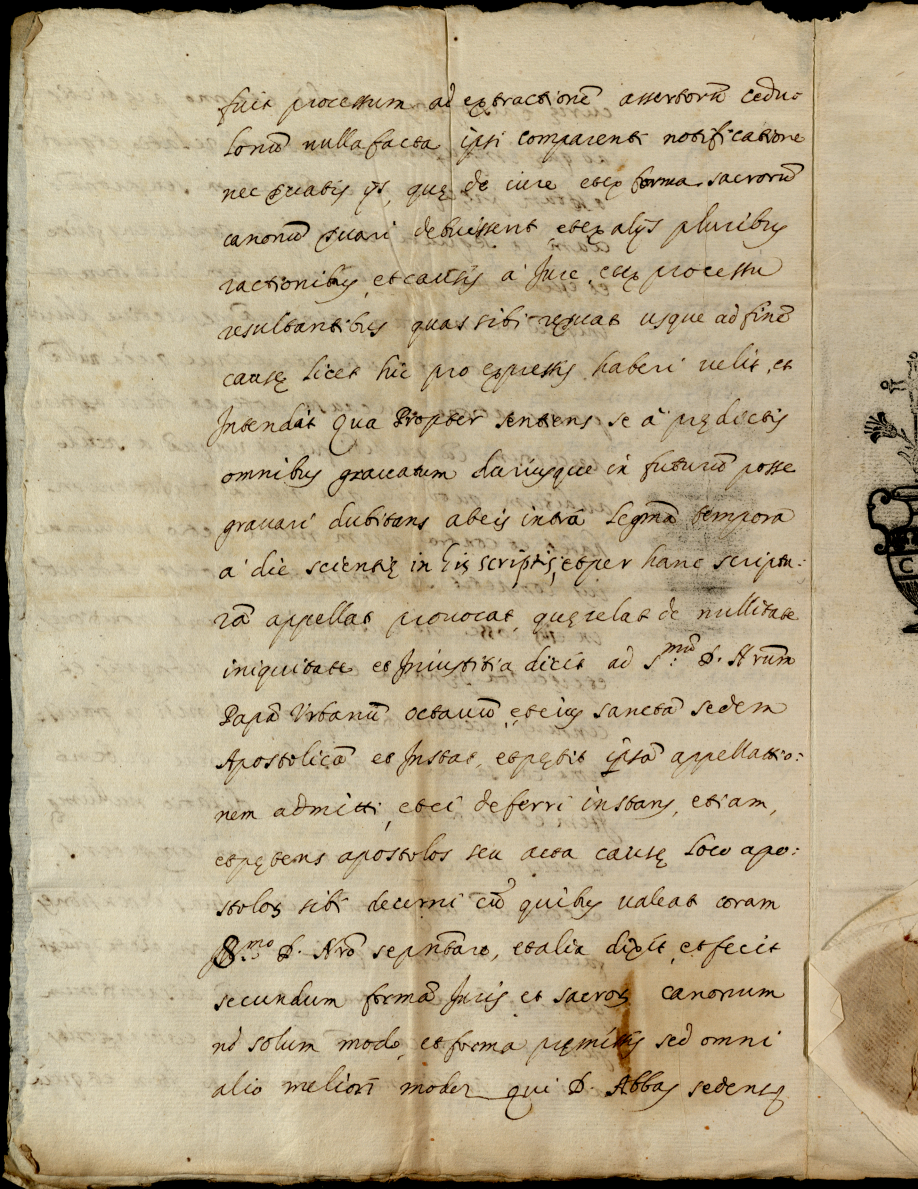 fuit processum ad extractionē assertorū cedu=
lonū nulla facta ipsi comparenti notificatione
nec ȝuatis ijs, quę de iure etex forma sacrorū
canonū ȝuari debuissent etex alijs pluribȝ
ractionibȝ et causis a Jure etex processu
resultantibȝ quas sibi reȝuat usque ad finē
causę licet hic pro expressis haberi uelit, et
Intendāt Qua Propter sentiens se à prędictis
omnibus grauatum dariusque in futurū posse
grauari dubitans abeis intrà legmā tempora
a' die scientię in his scriptis, etper hanc scriptu:
rā appellat prouocat, quęrelat de nullitate
iniquitate et Iniustitia dicit ad S.mū D. Nrūm
Papā Vrbanū octauū, eteius sanctā sedem
Apostolicā et Instat, etpętit ipsā appellatio:
nem admitti, etei deferri instans, etiam,
etpętens apostolos seu acta causę loco apo:
stoloȝ sibi decerni cū quibȝ ualeat coram
S.mo D. Nrō sepn̄tare, etalia dixit, et fecit
secundum formā Juris et sacroȝ canonum
nō solum modo, et forma pręmissis sed omni
alio meliori modo qui D. Abbas sedens